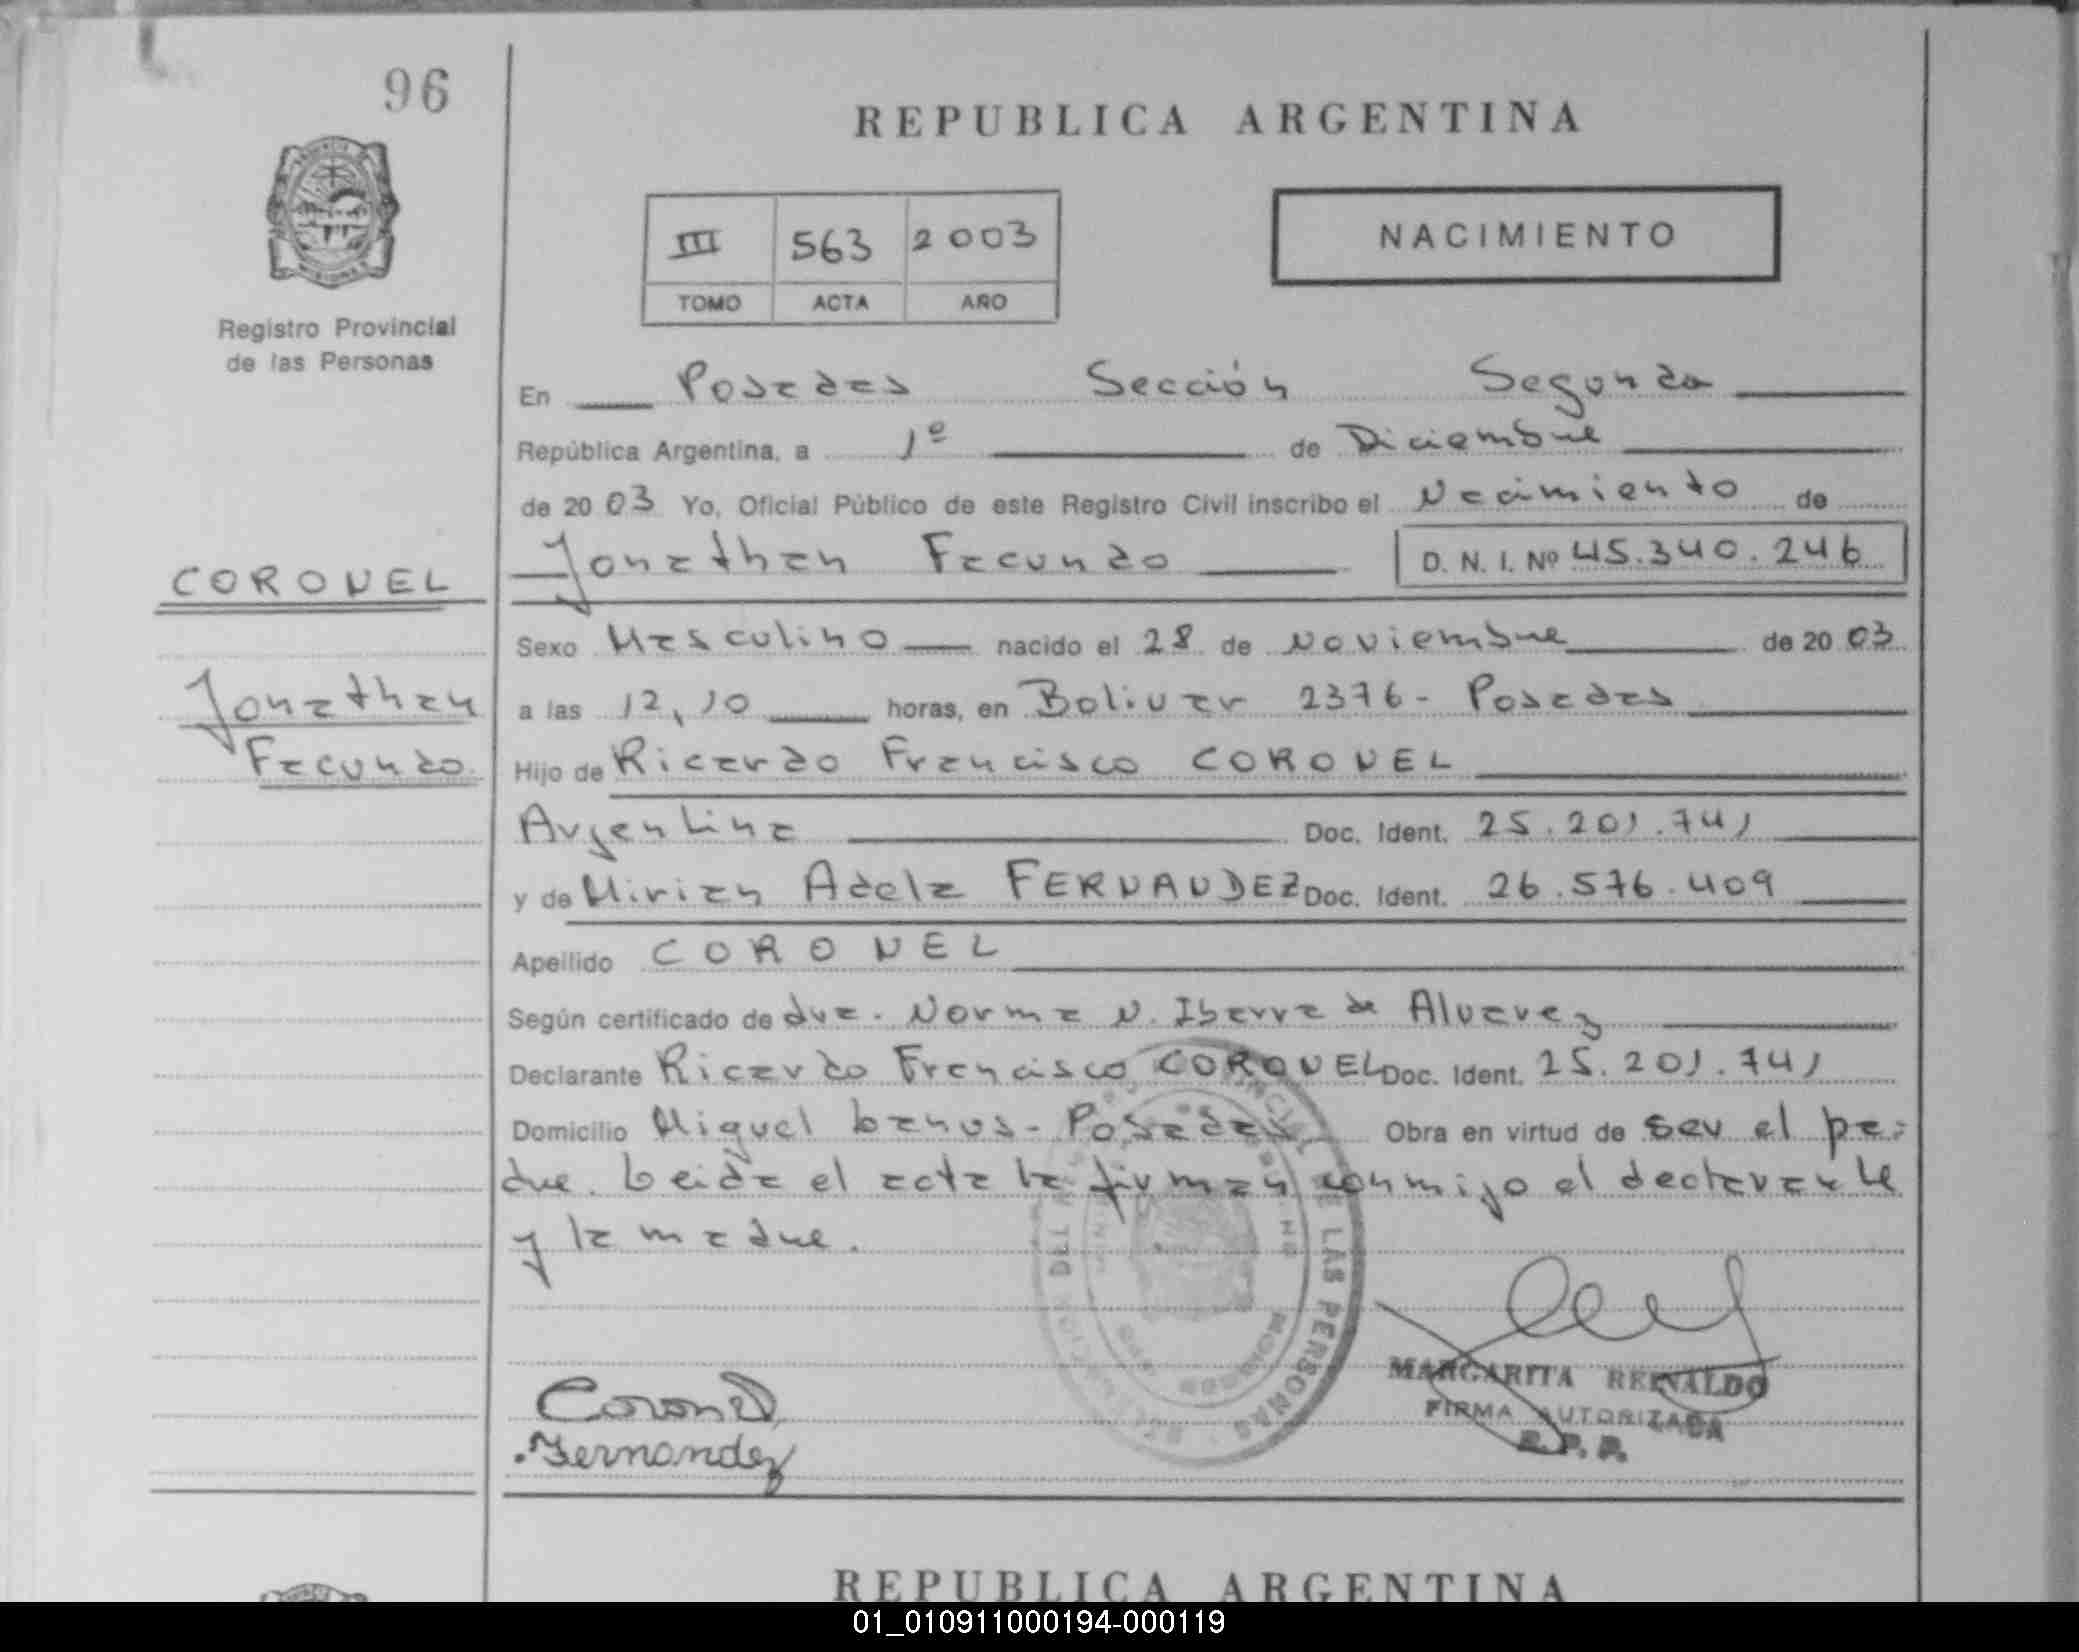 96
REPUBLICA ARGENTINA
III 563 2003
TOMO ACTA AÑO
NACIMIENTO
Registro Provincial
de las Personas
En Posadas Sección Segunda
República Argentina, a 1º de Diciembre
de 2003 Yo, Oficial Público de este Registro Civil inscribo el Nacimiento de
Jonathan Facundo D. N. I. Nº 45.340.246
CORONEL
Sexo Masculino nacido el 28 de Noviembre de 2003
Jonathan
a las 12,10 horas, en Bolivar 2376- Posadas
Facundo.
Hijo de Ricardo Francisco CORONEL
Argentina Doc. Ident. 25.201.741
y de Mirian Adela FERNANDEZ Doc. Ident. 26.576.409
Apellido CORONEL
Según certificado de dra. Norma N. Ibarra de Alvarez
Declarante Ricardo Francisco CORONEL Doc. Ident. 25.201.741
Domicilio Miguel Lanus- Posadas Obra en virtud de ser el pa-
dre. Leida el acta la firman conmigo el declarante
y la madre.
DE LAS PERSONAS
Coronel
Fernandez
MARGARITA REINALDO
FIRMA AUTORIZADA
R.P.P.
REPUBLICA ARGENTINA
01_010911000194-000119